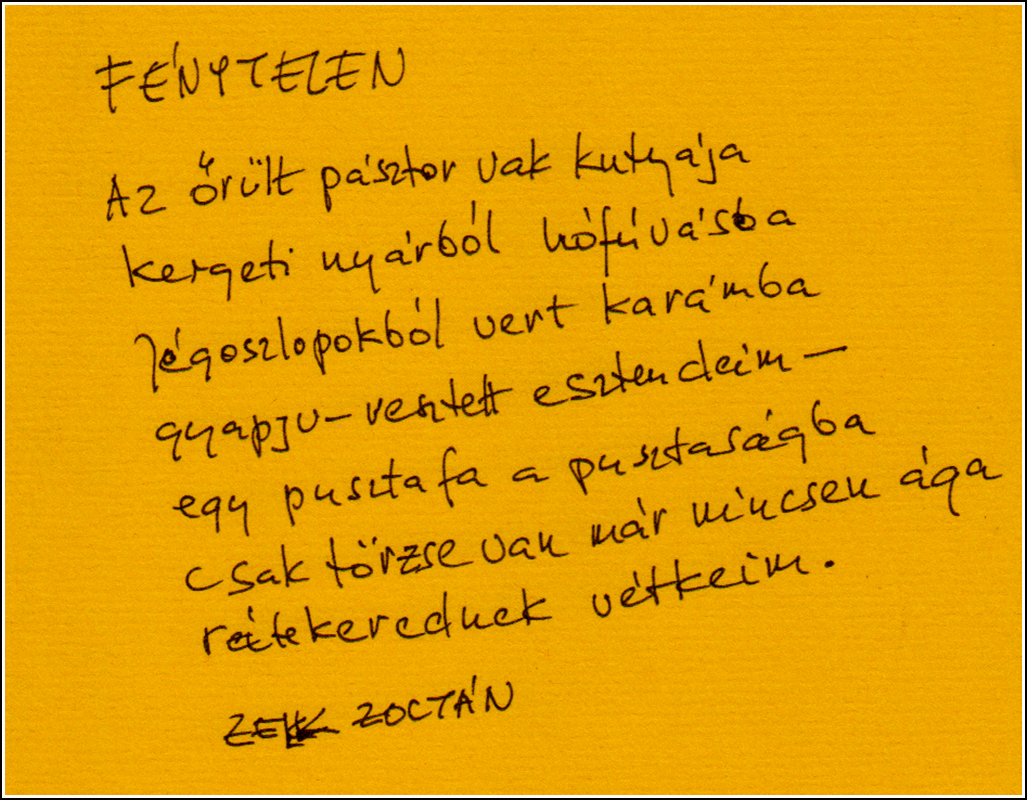 FÉNYTELEN
Az őrült pásztor vak kutyája
kergeti nyárból hófúvásba
jégoszlopokból vert karámba
gyapju-vesztett esztendeim –
egy puszta fa a pusztaságba
csak törzse van már nincsen ága
rátekerednek vétkeim.
ZELK ZOLTÁN